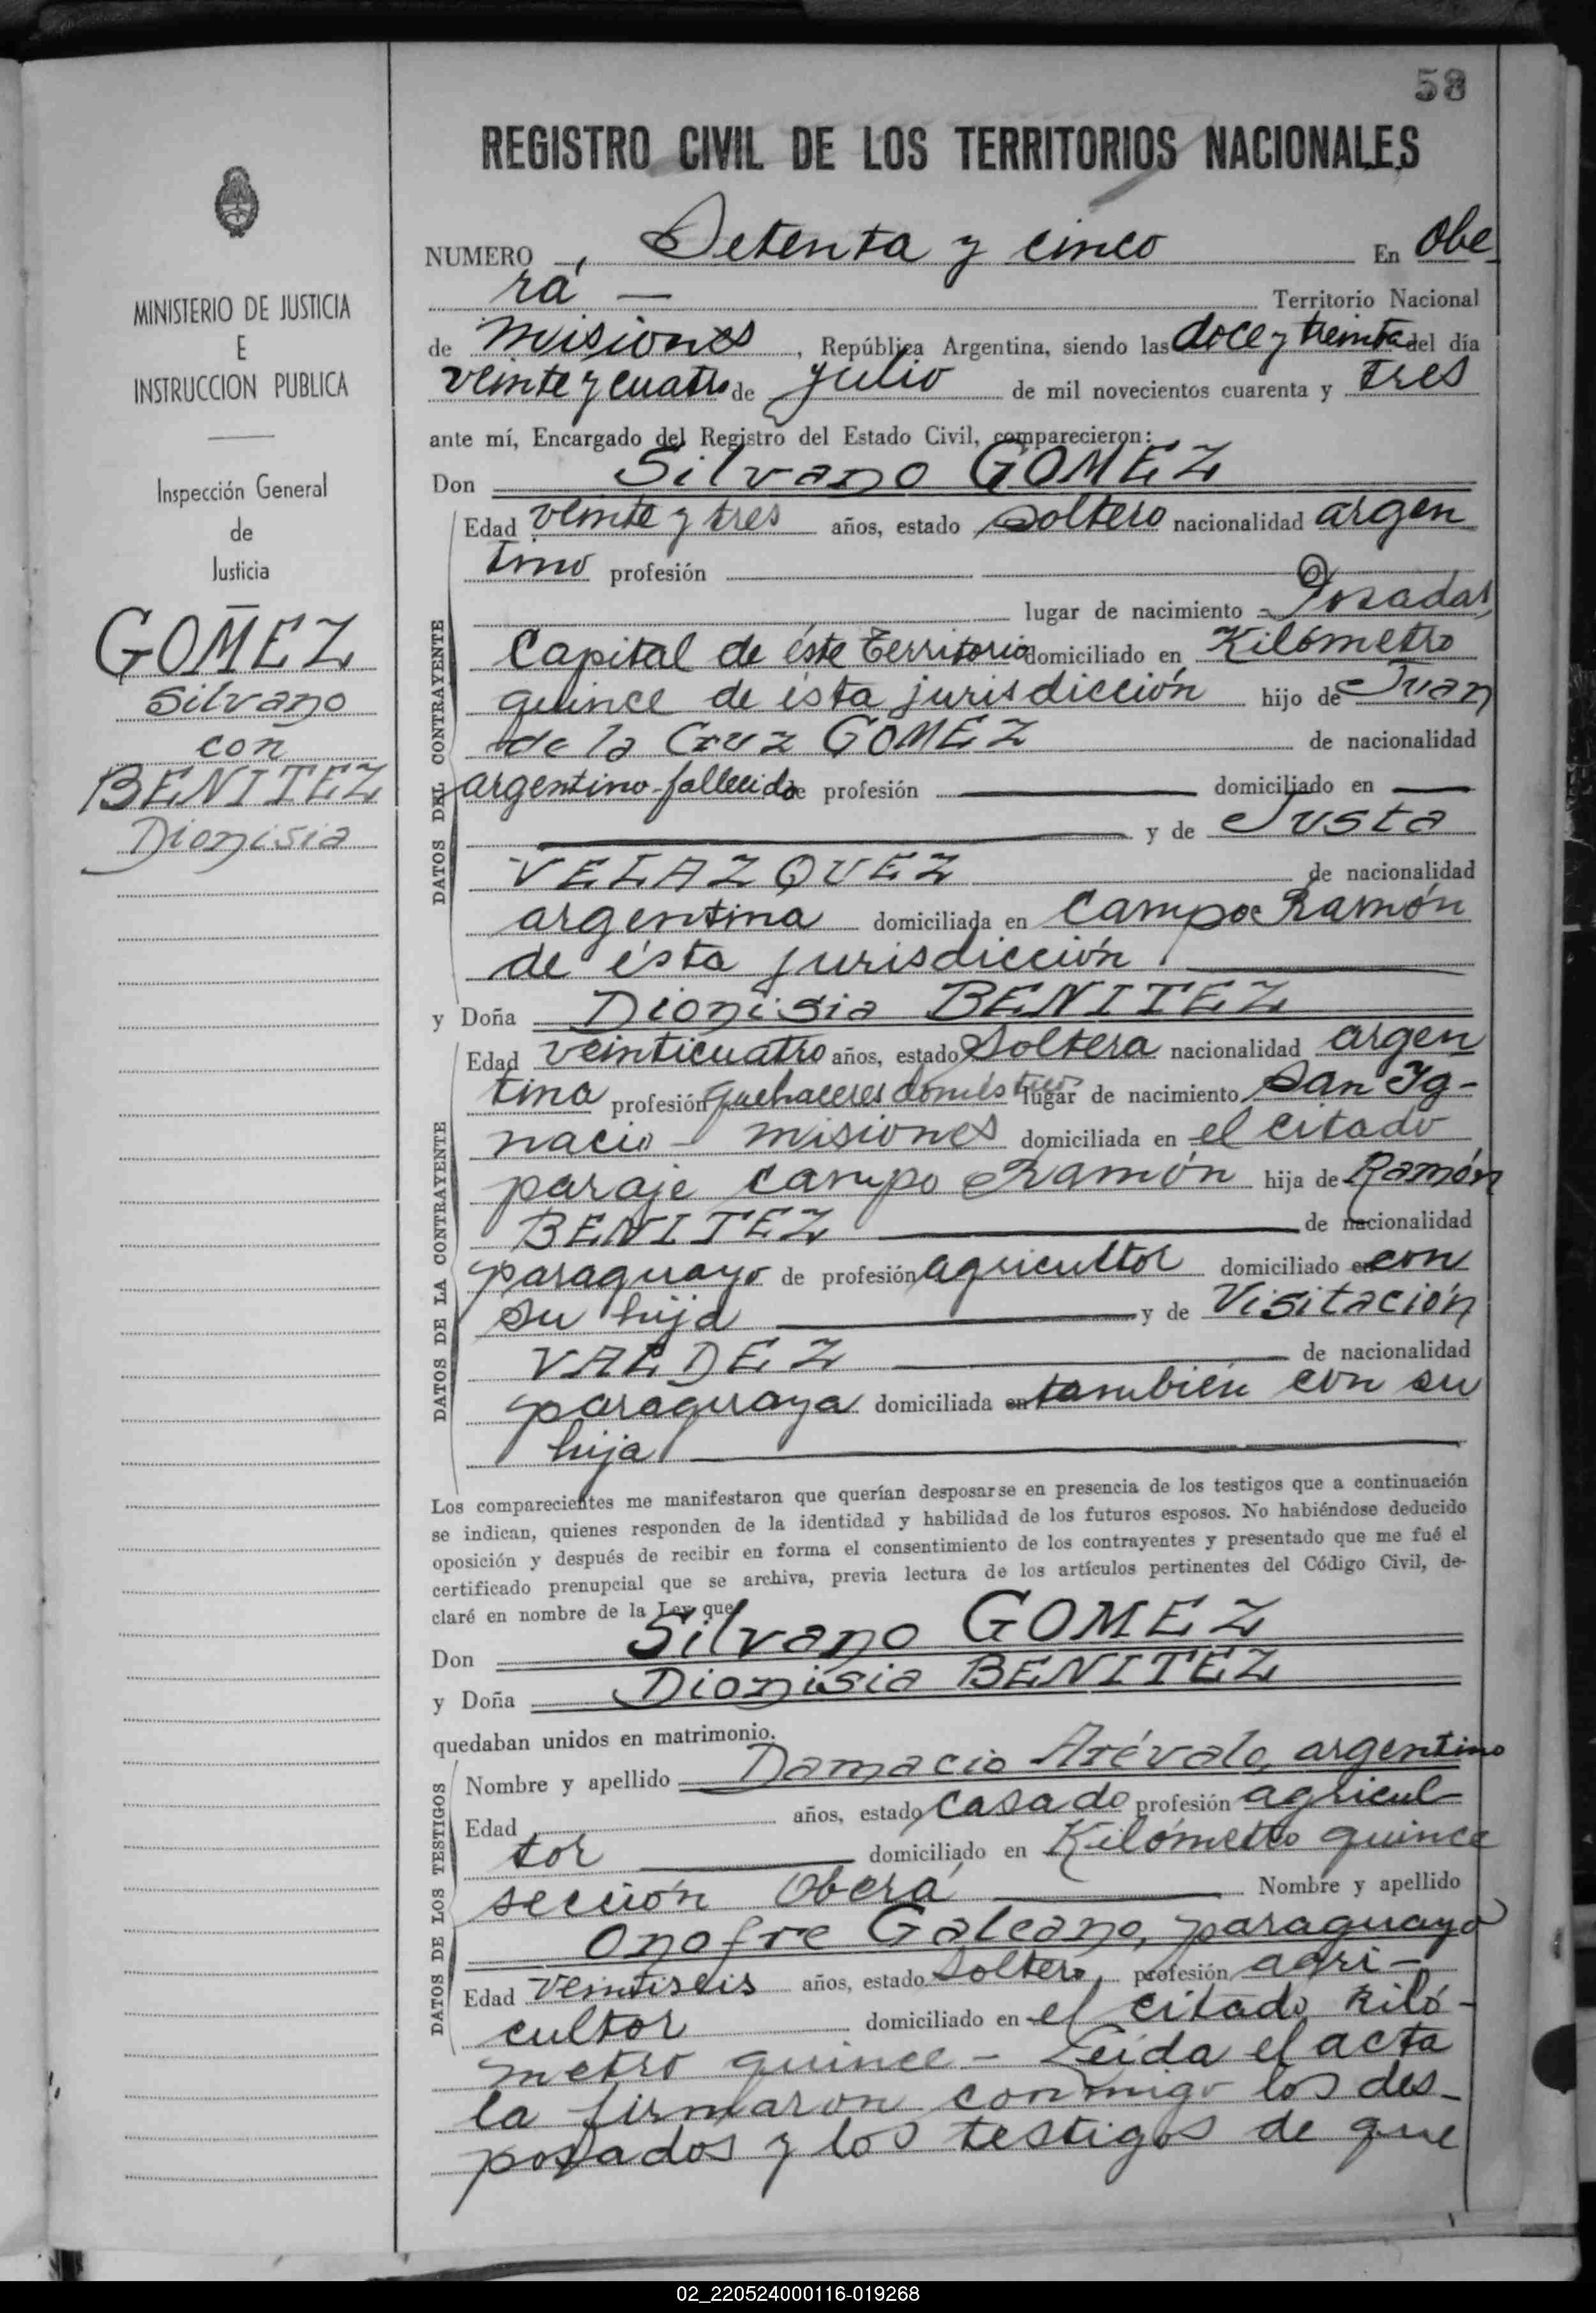 58
REGISTRO CIVIL DE LOS TERRITORIOS NACIONALES
NUMERO Setenta y cinco En Obe
rá — Territorio Nacional
de Misiones, República Argentina, siendo las doce y treinta del día
veinte y cuatro de julio de mil novecientos cuarenta y tres
ante mí, Encargado del Registro del Estado Civil, comparecieron:
Don Silvano GOMEZ
Edad veinte y tres años, estado soltero nacionalidad argen
tino profesión
lugar de nacimiento Posadas,
Capital de éste territorio domiciliado en Kilómetro
quince de ésta jurisdicción hijo de Juan
de la Cruz GOMEZ de nacionalidad
argentino-fallecido de profesión — domiciliado en —
— y de Justa
VELAZQUEZ de nacionalidad
argentina domiciliada en Campo Ramón
de ésta jurisdicción
y Doña Dionisia BENITEZ
Edad veinticuatro años, estado soltera nacionalidad argen
tina profesión quehaceres domésticos lugar de nacimiento San Ig-
nacio - Misiones domiciliada en el citado
paraje Campo Ramón hija de Ramón
BENITEZ — de nacionalidad
paraguayo de profesión agricultor domiciliado en con
su hija — y de Visitación
VALDEZ — de nacionalidad
paraguaya domiciliada en también con su
hija —
DATOS DEL CONTRAYENTE
DATOS DE LA CONTRAYENTE
Los comparecientes me manifestaron que querían desposarse en presencia de los testigos que a continuación
se indican, quienes responden de la identidad y habilidad de los futuros esposos. No habiéndose deducido
oposición y después de recibir en forma el consentimiento de los contrayentes y presentado que me fué el
certificado prenupcial que se archiva, previa lectura de los artículos pertinentes del Código Civil, de-
claré en nombre de la Ley que
Don Silvano GOMEZ
y Doña Dionisia BENITEZ
quedaban unidos en matrimonio.
Nombre y apellido Damacio Arévalo, argentino
Edad años, estado casado profesión agricul
tor — domiciliado en Kilómetro quince
sección Oberá — Nombre y apellido
Onofre Galeano, paraguayo
Edad veintiseis años, estado soltero, profesión agri-
cultor domiciliado en el citado kiló-
metro quince - Leída el acta
la firmaron conmigo los des-
posados y los testigos de que
DATOS DE LOS TESTIGOS
MINISTERIO DE JUSTICIA
E
INSTRUCCION PUBLICA
Inspección General
de
Justicia
GOMEZ
Silvano
con
BENITEZ
Dionisia
02_220524000116-019268